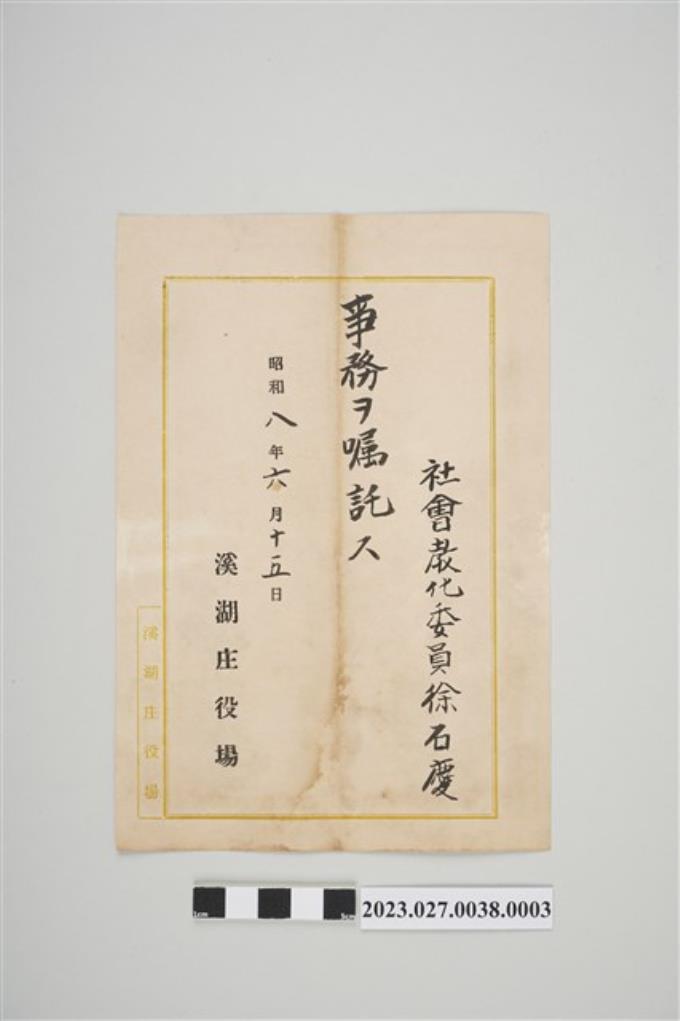 社會教化委員徐石慶
事務ヲ嘱託ス
昭和八年六月十五日
溪湖庄役場
溪湖庄役場
1cm
5cm
2023.027.0038.0003